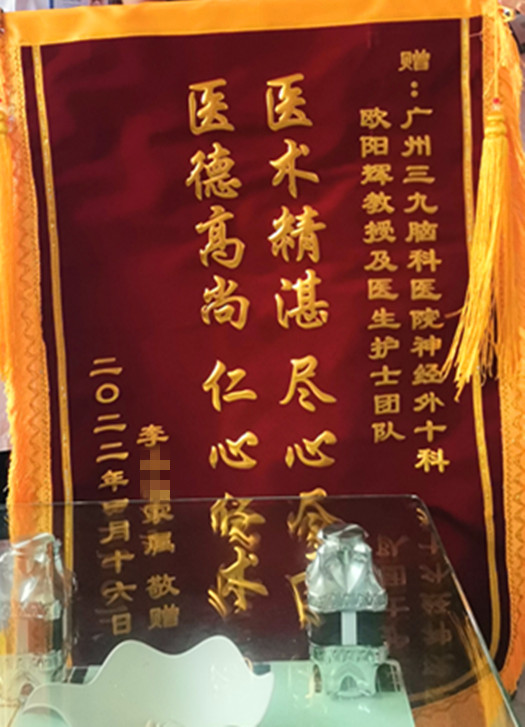 赠：广州三九脑科医院神经外十科
欧阳辉教授及医生护士团队
医术精湛 尽心尽
医德高尚 仁心
李 属 敬赠
二〇二二年四月十六日